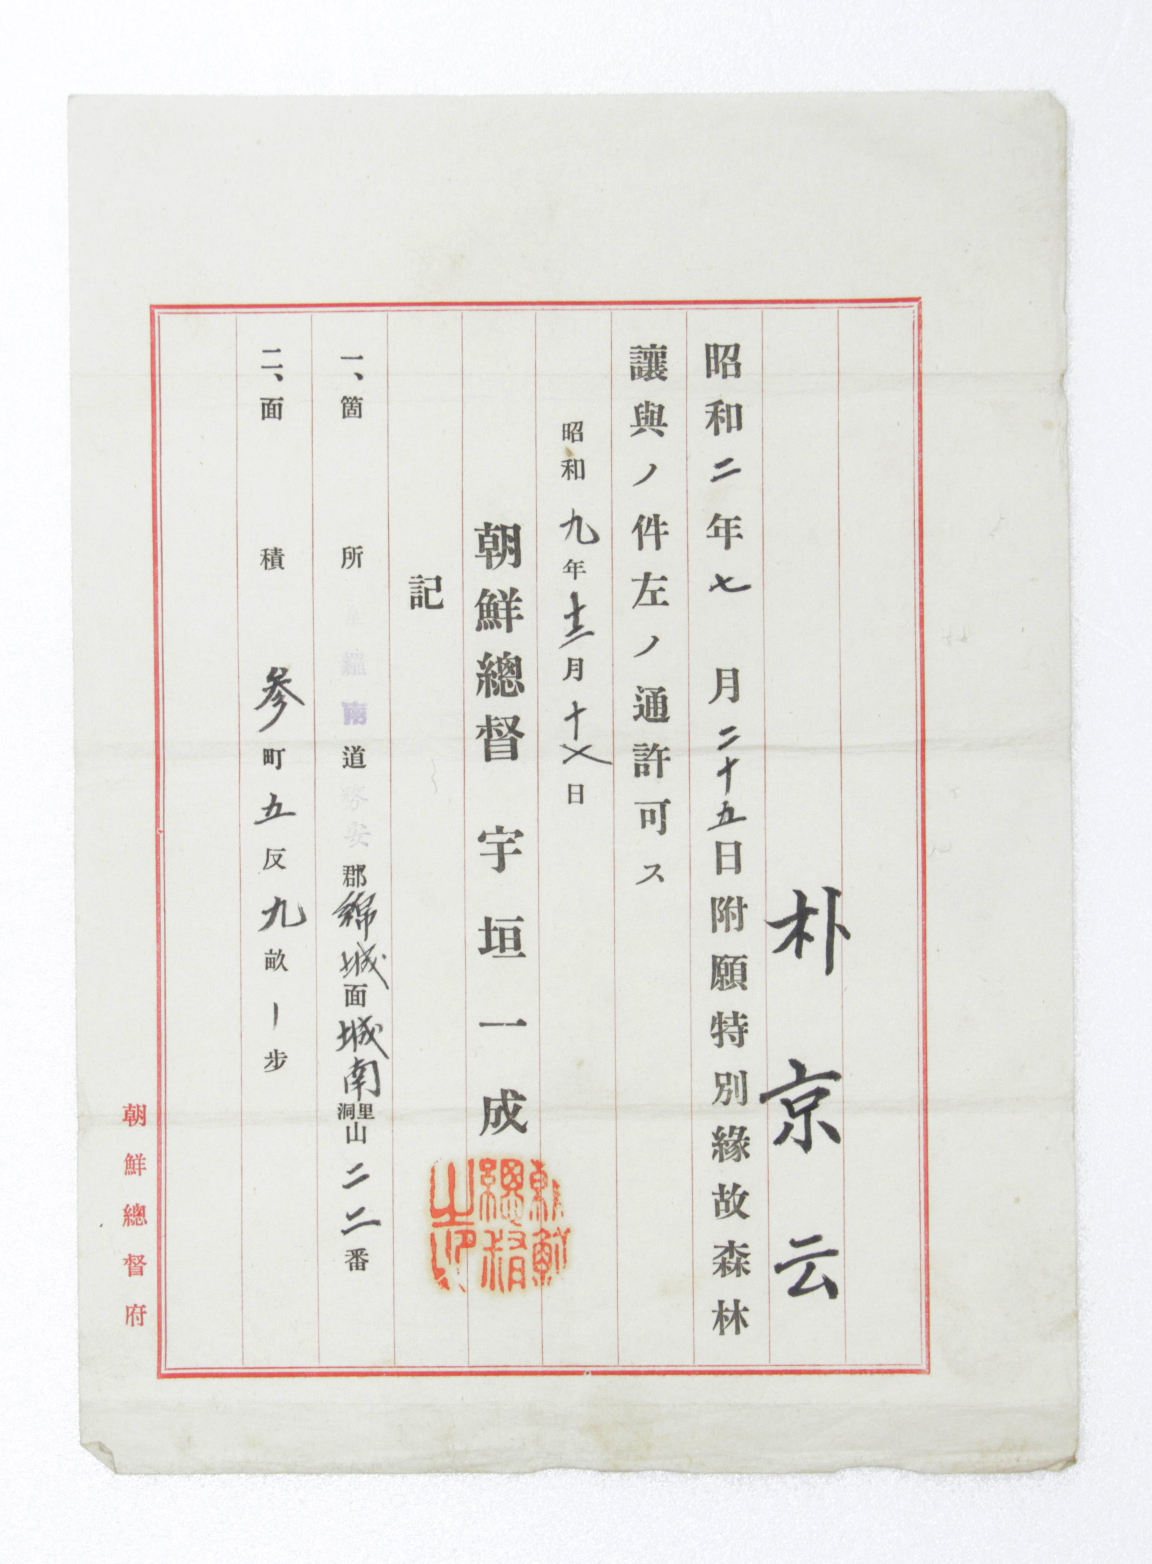 朴京云
昭和二年七月二十五日附願特別緣故森林
讓與ノ件左ノ通許可ス
昭和九年十二月十七日
朝鮮總督 宇垣一成
朝鮮總督之印
記
一、箇所 羅南道務安郡綿城面城南里洞山二二番
二、面積 參町五反九畝〡步
朝鮮總督府